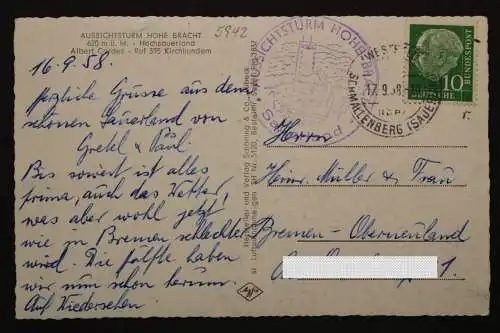 AUSSICHTSTURM HOHE BRACHT
620 m ü. M. - Hochsauerland
Albert Cordes - Ruf 395 Kirchhundem
5942
16.9.58.
Herzliche Grüsse aus dem
schönen Sauerland von
Gretel & Paul.
Bis soweit ist alles
prima, auch das Wetter,
was aber wohl jetzt
wie in Bremen schlechter
wird. Die Hälfte haben
wir nun schon herum.
Auf Wiedersehen
Hersteller und Verlag Schöning & Co.
AUSSICHTSTURM HOHE BRACHT
SCHMALLENBERG (SAUERL)
17.9.58
DEUTSCHE BUNDESPOST
10
Herrn
Heinr. Müller & Frau
Bremen - Oberneuland
1.